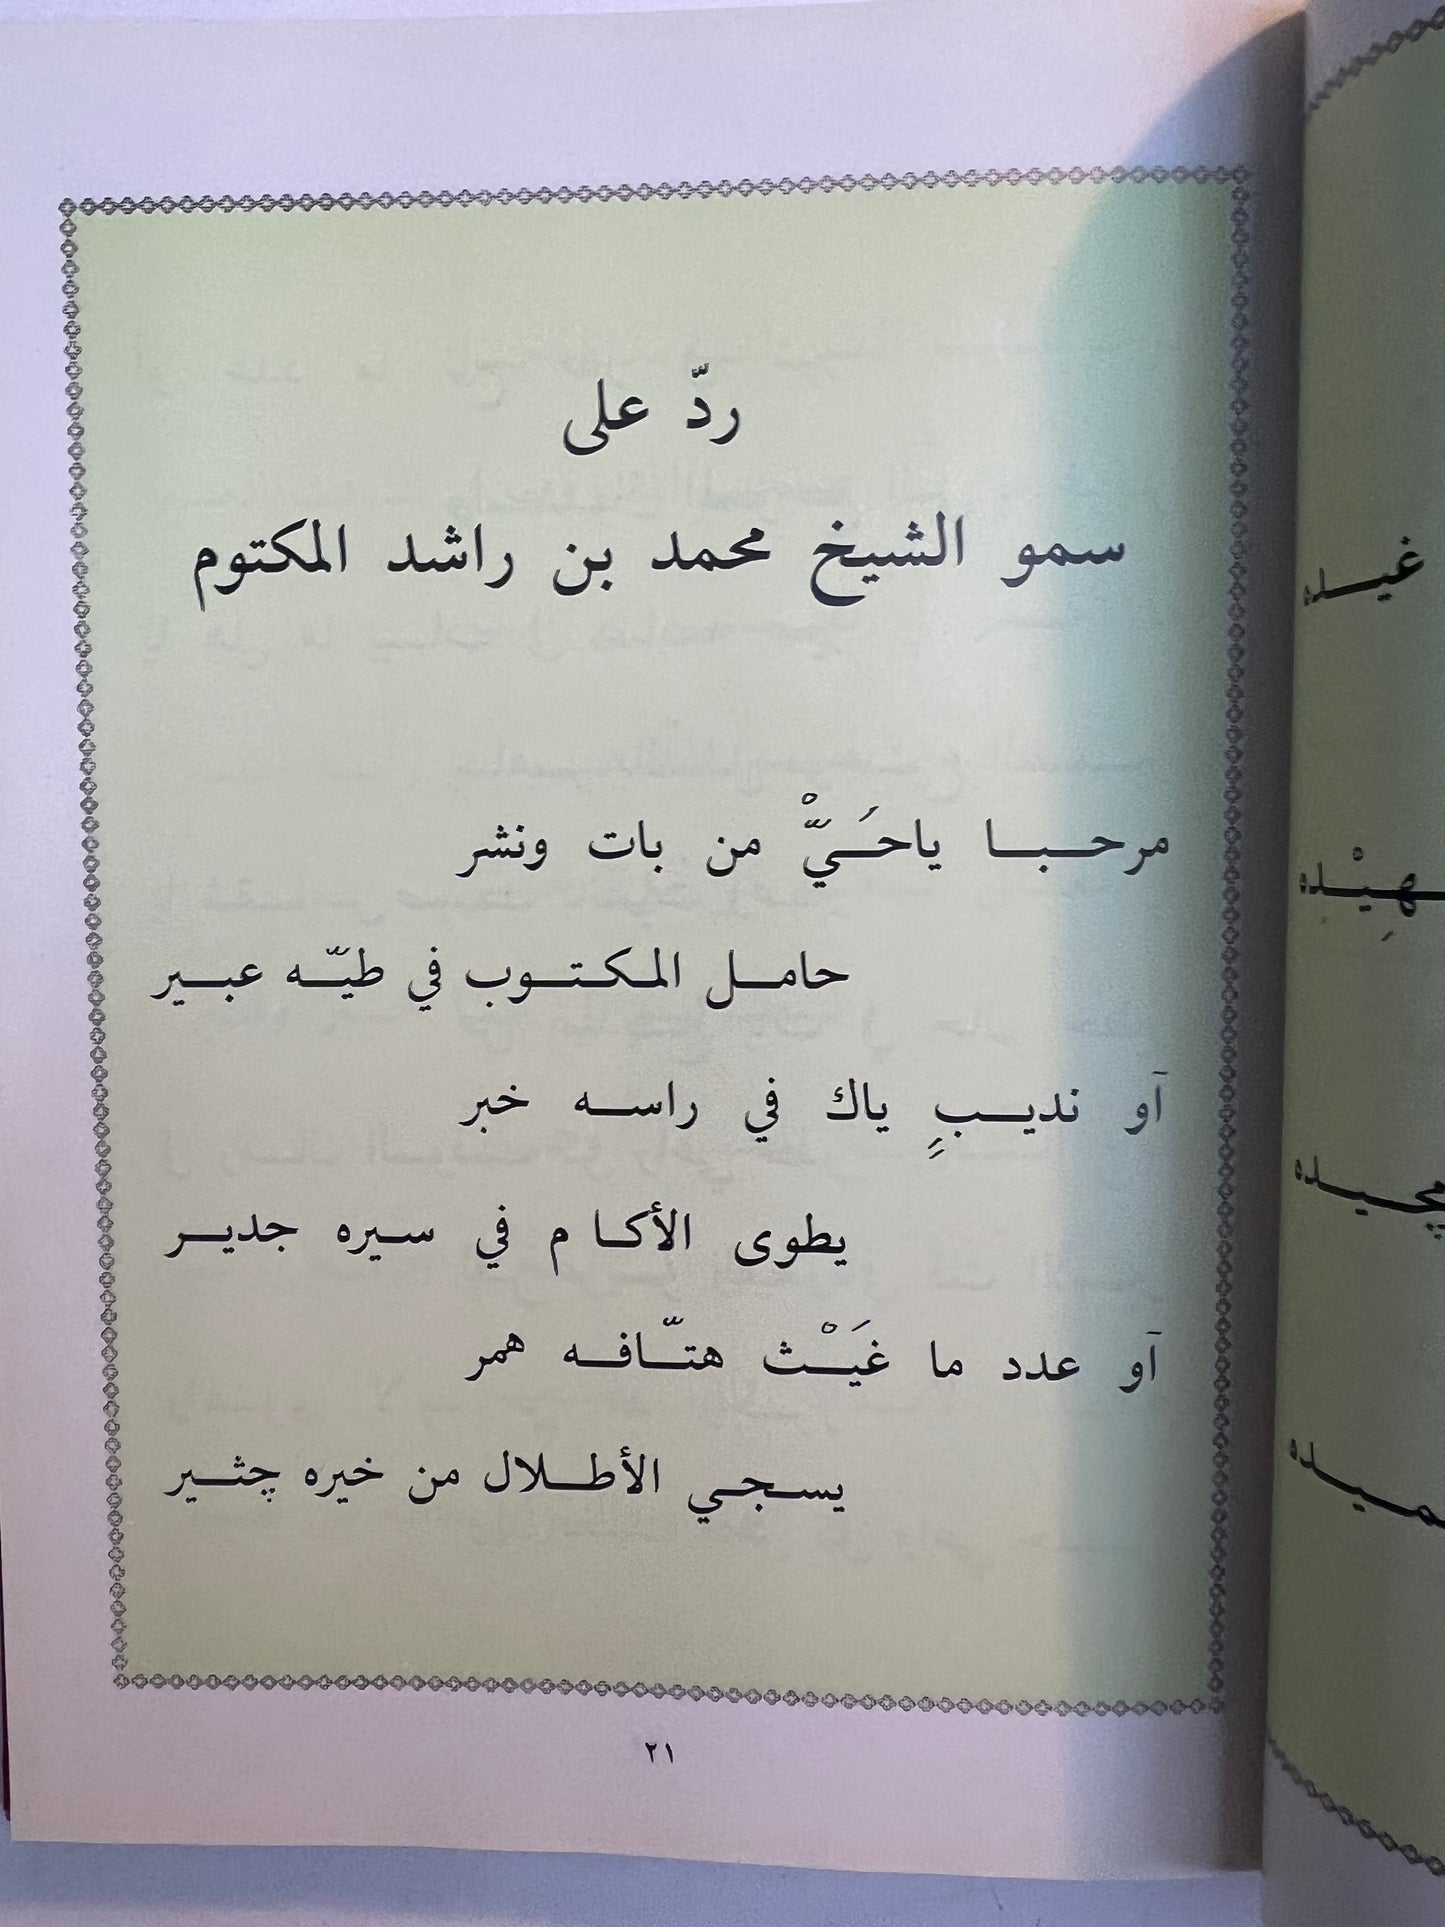 ردّ على
سمو الشيخ محمد بن راشد المكتوم
مرحبا ياحَيّْ من بات ونشر
حامل المكتوب في طيّه عبير
آو نديبٍ ياك في راسه خبر
يطوى الأكام في سيره جدير
آو عدد ما غَيْث هتّافه همر
يسجي الأطلال من خيره چثير
٢١
غيده
هِيْده
چيده
ميده